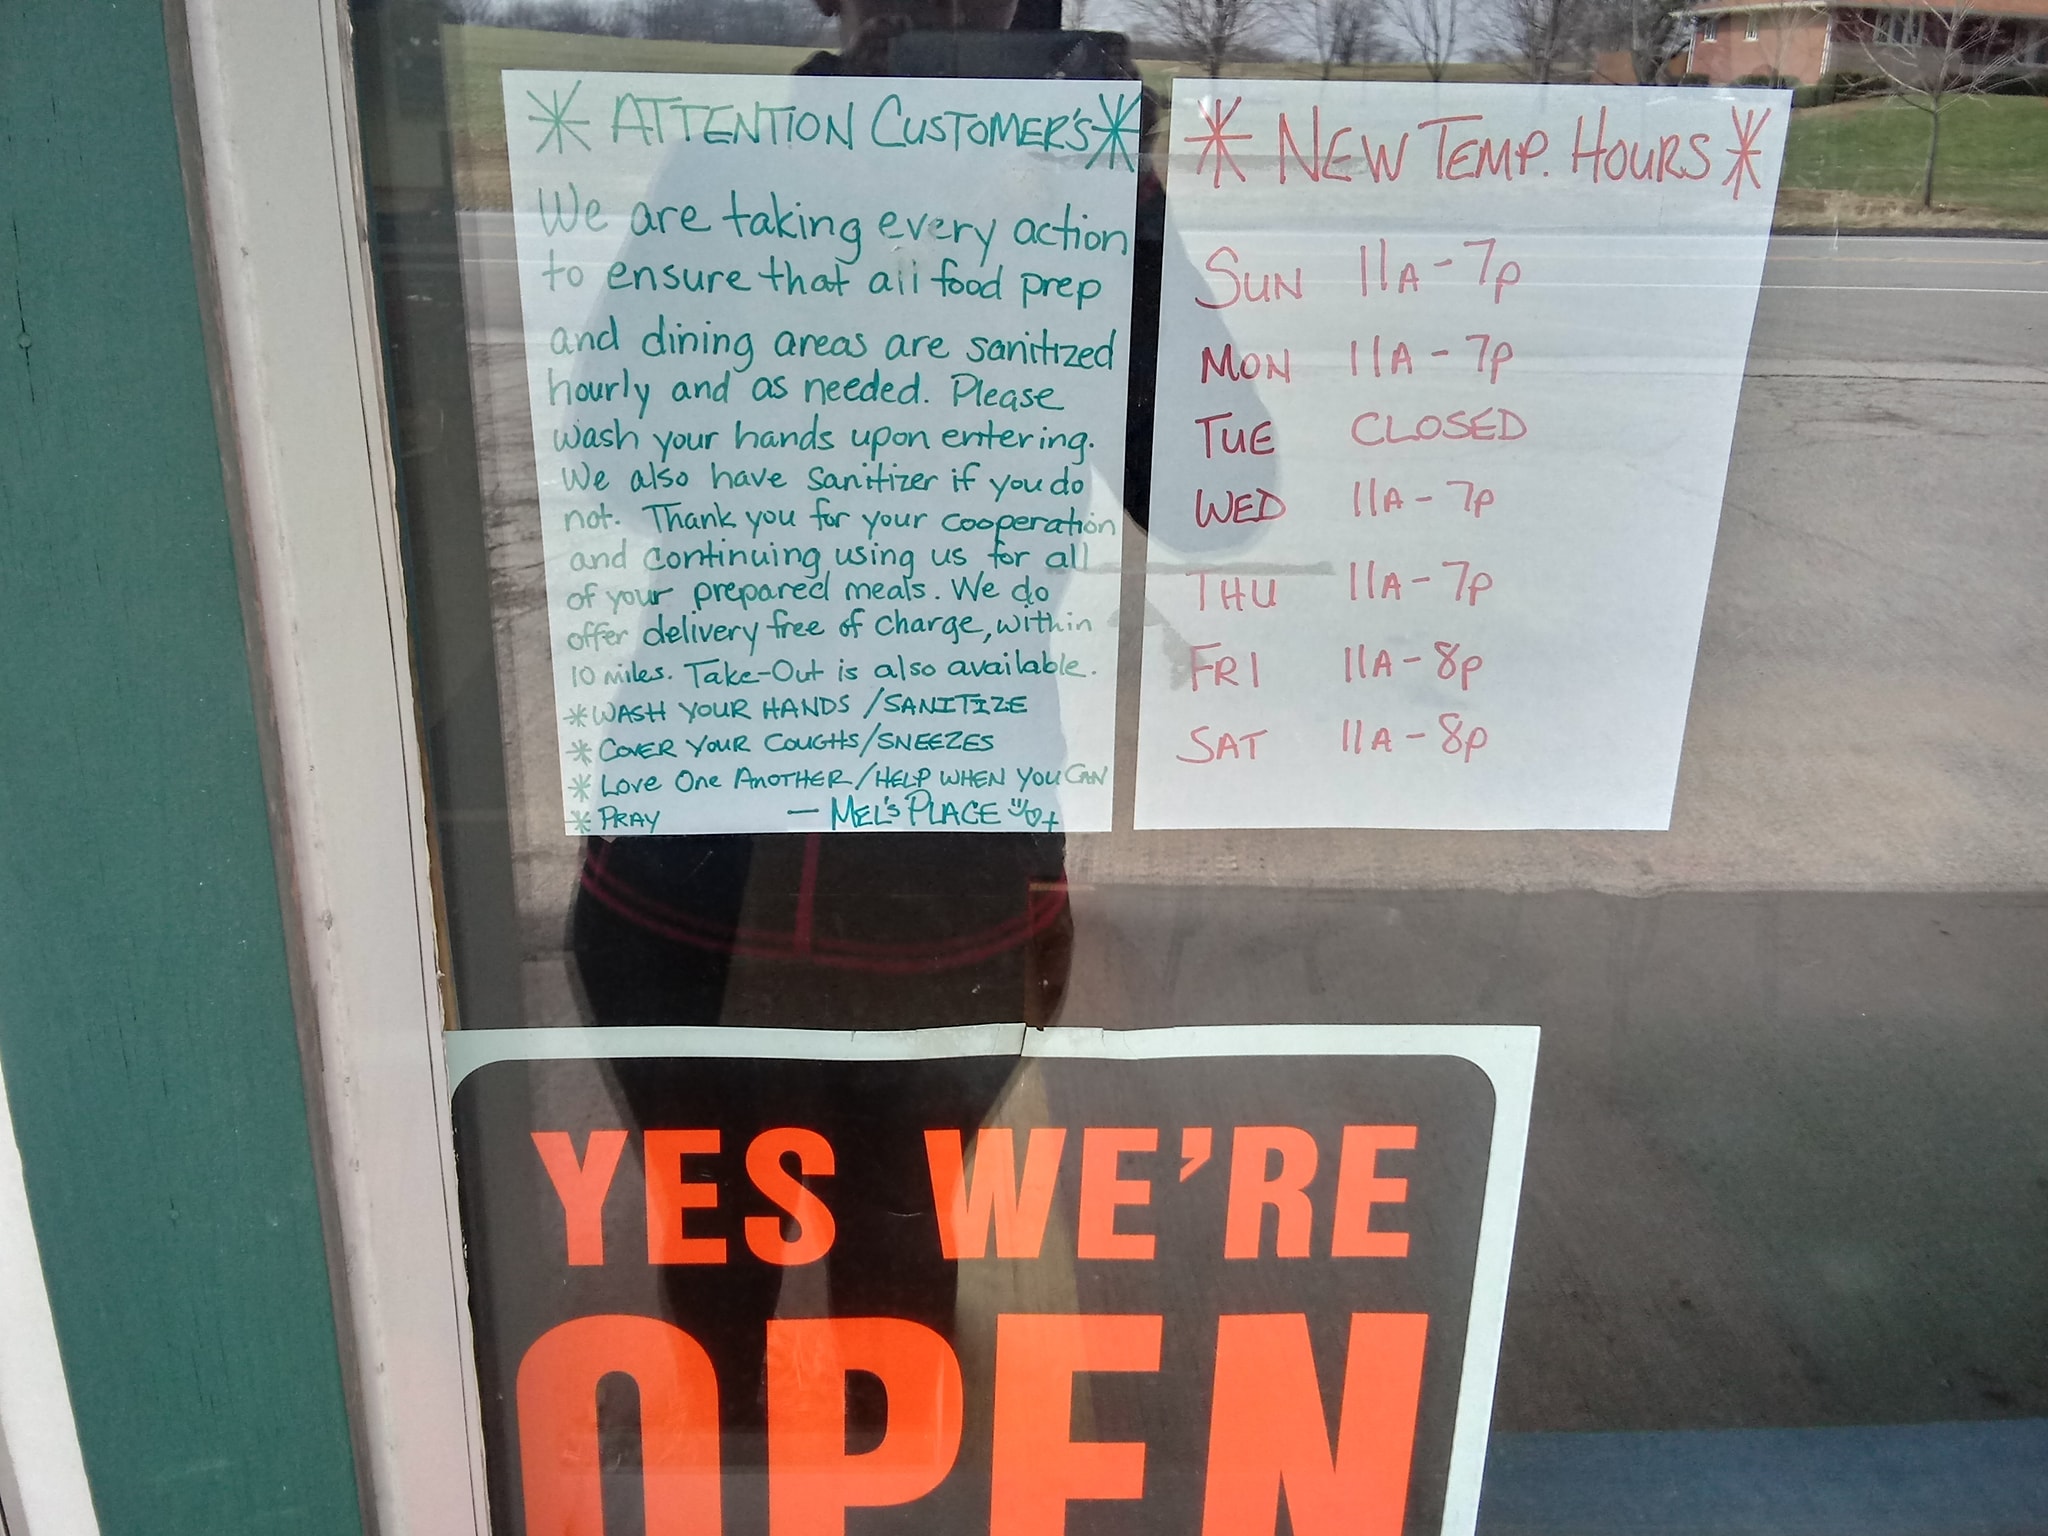 * ATTENTION CUSTOMER'S *
We are taking every action
to ensure that all food prep
and dining areas are sanitized
hourly and as needed. Please
wash your hands upon entering.
We also have sanitizer if you do
not. Thank you for your cooperation
and continuing using us for all
of your prepared meals. We do
offer delivery free of charge, within
10 miles. Take-Out is also available.
* WASH YOUR HANDS / SANITIZE
* COVER YOUR COUGHS/SNEEZES
* LOVE ONE ANOTHER / HELP WHEN YOU CAN
* PRAY — MEL'S PLACE
* NEW TEMP. HOURS *
SUN 11A - 7P
MON 11A - 7P
TUE CLOSED
WED 11A - 7P
THU 11A - 7P
FRI 11A - 8P
SAT 11A - 8P
YES WE'RE
OPEN